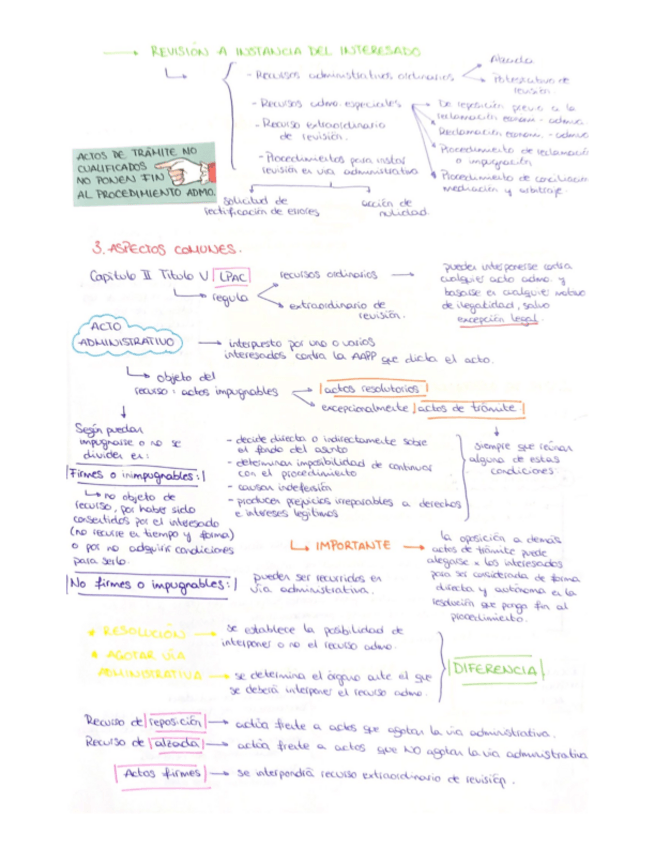 REVISIÓN A INSTANCIA DEL INTERESADO
- Recursos administrativos ordinarios
Alzada
Potestativo de
revisión.
- Recursos admo. especiales
De reposición previo a la
reclamación econom - admva
Reclamación econom. - admva
Procedimiento de reclamación
o impugnación
Procedimiento de conciliación
mediación y arbitraje.
- Recurso extraordinario
de revisión.
- Procedimientos para instar
revisión en vía administrativa
solicitud de
rectificación de errores
acción de
nulidad.
ACTOS DE TRÁMITE NO
CUALIFICADOS
NO PONEN FIN
AL PROCEDIMIENTO ADMO.
3. ASPECTOS COMUNES.
Capítulo II Título V LPAC
regula
recursos ordinarios
extraordinario de
revisión.
pueden interponerse contra
cualquier acto admo. y
basarse en cualquier motivo
de ilegalidad, salvo
excepción legal.
ACTO
ADMINISTRATIVO
interpuesto por uno o varios
interesados contra la AAPP que dicta el acto.
objeto del
recurso: actos impugnables
actos resolutorios
excepcionalmente actos de trámite
Según puedan
impugnarse o no se
dividen en:
Firmes o inimpugnables:
no objeto de
recurso, por haber sido
consentidos por el interesado
(no recurre en tiempo y forma)
o por no adquirir condiciones
para serlo.
- decide directa o indirectamente sobre
el fondo del asunto
- determinan imposibilidad de continuar
con el procedimiento
- causan indefensión
- producen prejuicios irreparables a derechos
e intereses legítimos
siempre que reúnan
alguna de estas
condiciones
IMPORTANTE
la oposición a demás
actos de trámite puede
alegarse x los interesados
para ser considerada de forma
directa y autónoma en la
resolución que ponga fin al
procedimiento.
No firmes o impugnables:
pueden ser recurridos en
vía administrativa.
* RESOLUCIÓN
se establece la posibilidad de
interponer o no el recurso admo.
* AGOTAR VÍA
ADMINISTRATIVA
se determina el órgano ante el que
se deberá interponer el recurso admo.
DIFERENCIA
Recurso de reposición
actúa frente a actos que agotan la vía administrativa.
Recurso de alzada
actúa frente a actos que NO agotan la vía administrativa
Actos firmes
se interpondrá recurso extraordinario de revisión.